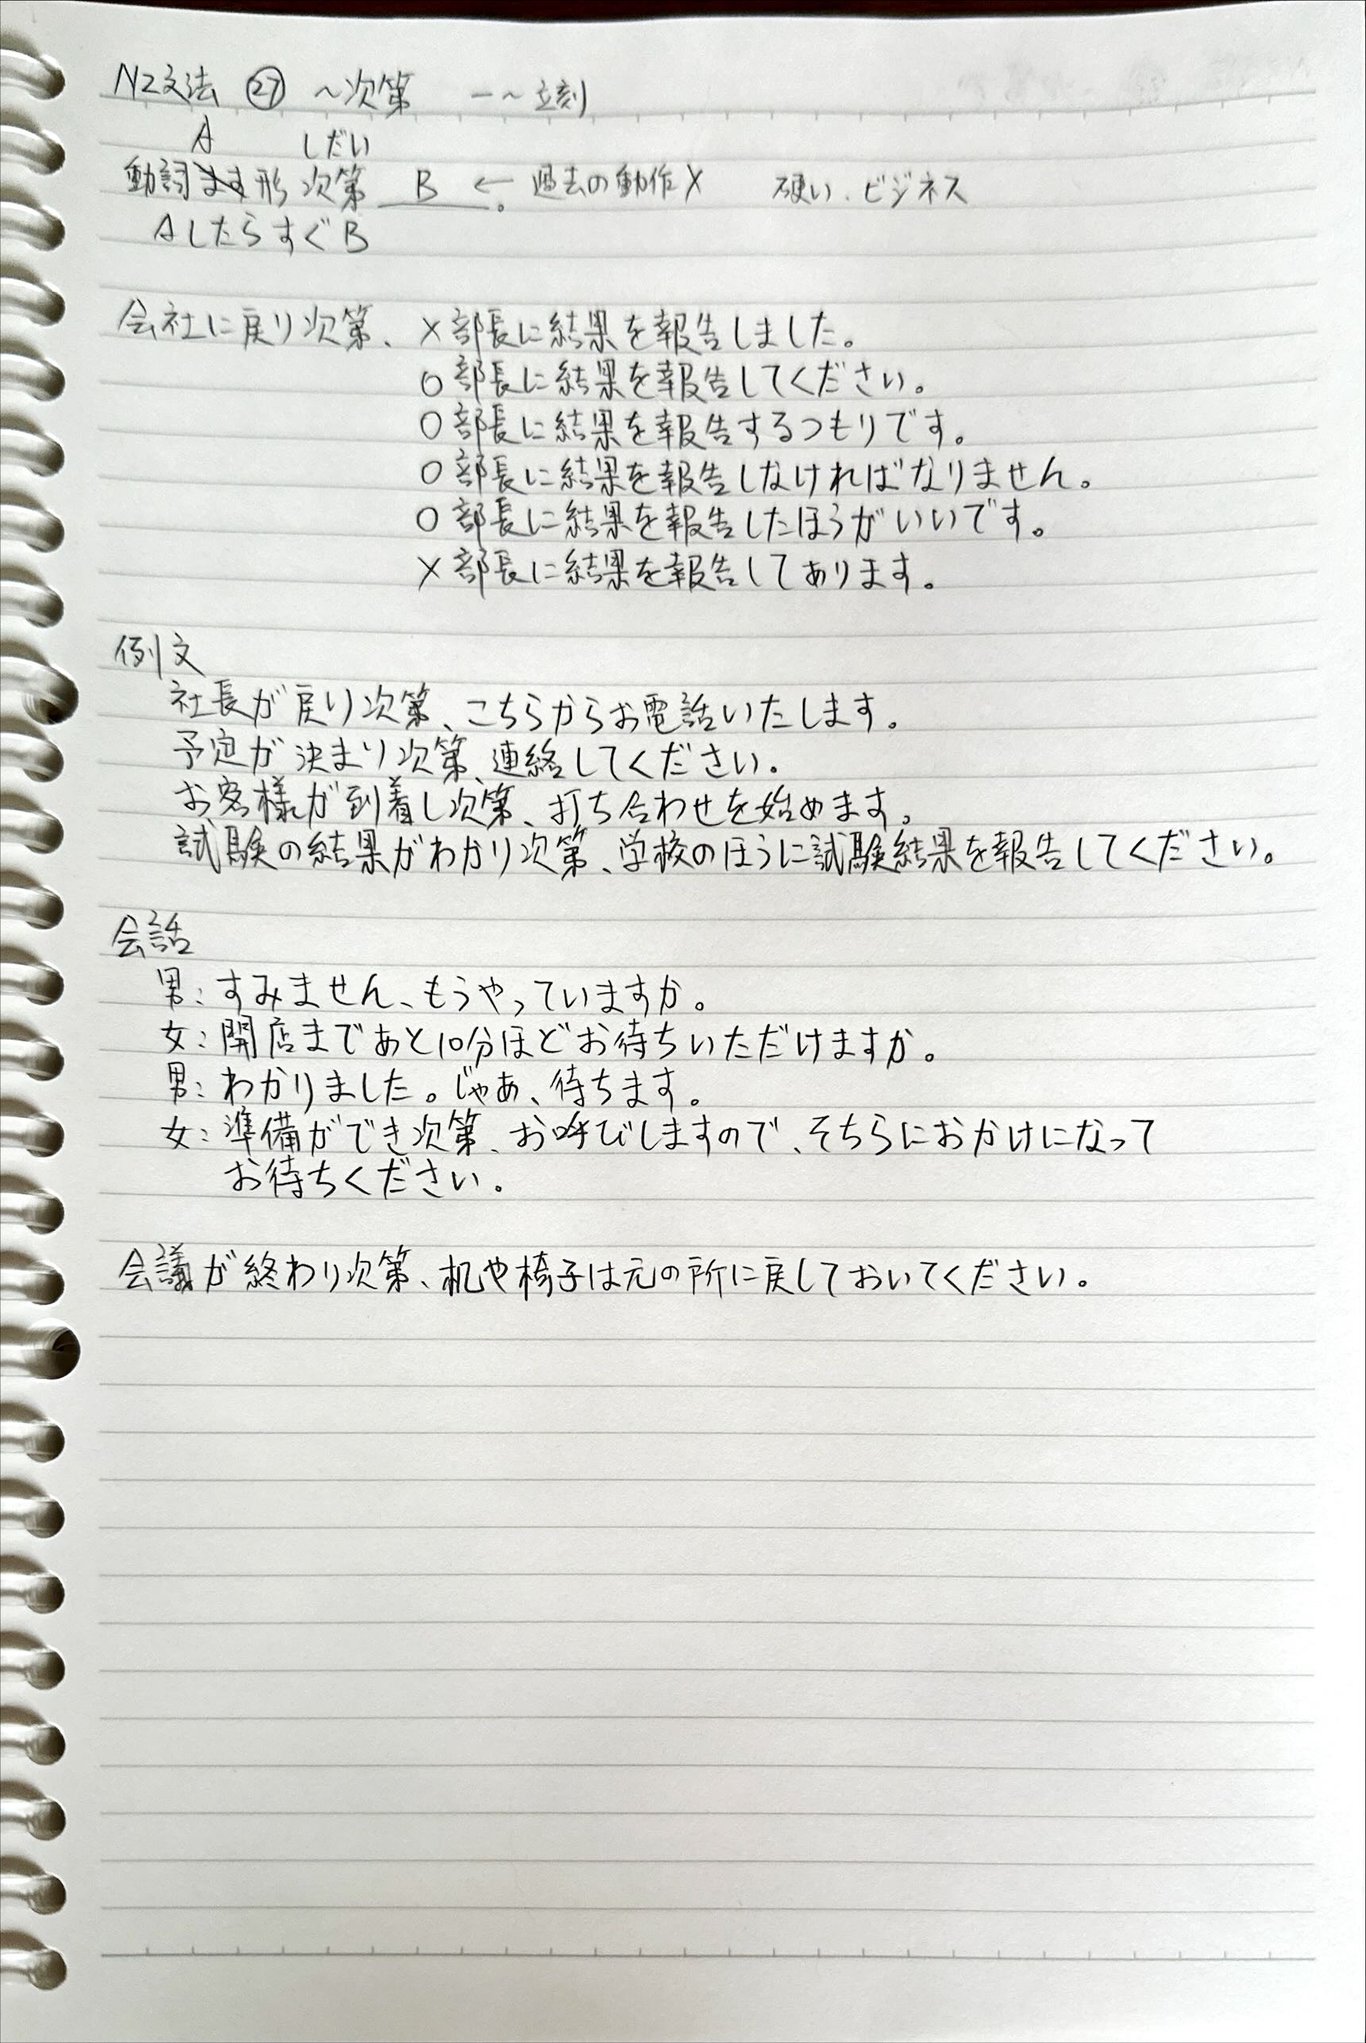 N2文法 ㉗ ～次第 一～立刻
A しだい
動詞ます形 次第 B ← 過去の動作× 硬い、ビジネス
AしたらすぐB
会社に戻り次第、×部長に結果を報告しました。
○部長に結果を報告してください。
○部長に結果を報告するつもりです。
○部長に結果を報告しなければなりません。
○部長に結果を報告したほうがいいです。
×部長に結果を報告してあります。
例文
社長が戻り次第、こちらからお電話いたします。
予定が決まり次第、連絡してください。
お客様が到着し次第、打ち合わせを始めます。
試験の結果がわかり次第、学校のほうに試験結果を報告してください。
会話
男：すみません、もうやっていますか。
女：開店まであと10分ほどお待ちいただけますか。
男：わかりました。じゃあ、待ちます。
女：準備ができ次第、お呼びしますので、そちらにおかけになって
お待ちください。
会議が終わり次第、机や椅子は元の所に戻しておいてください。